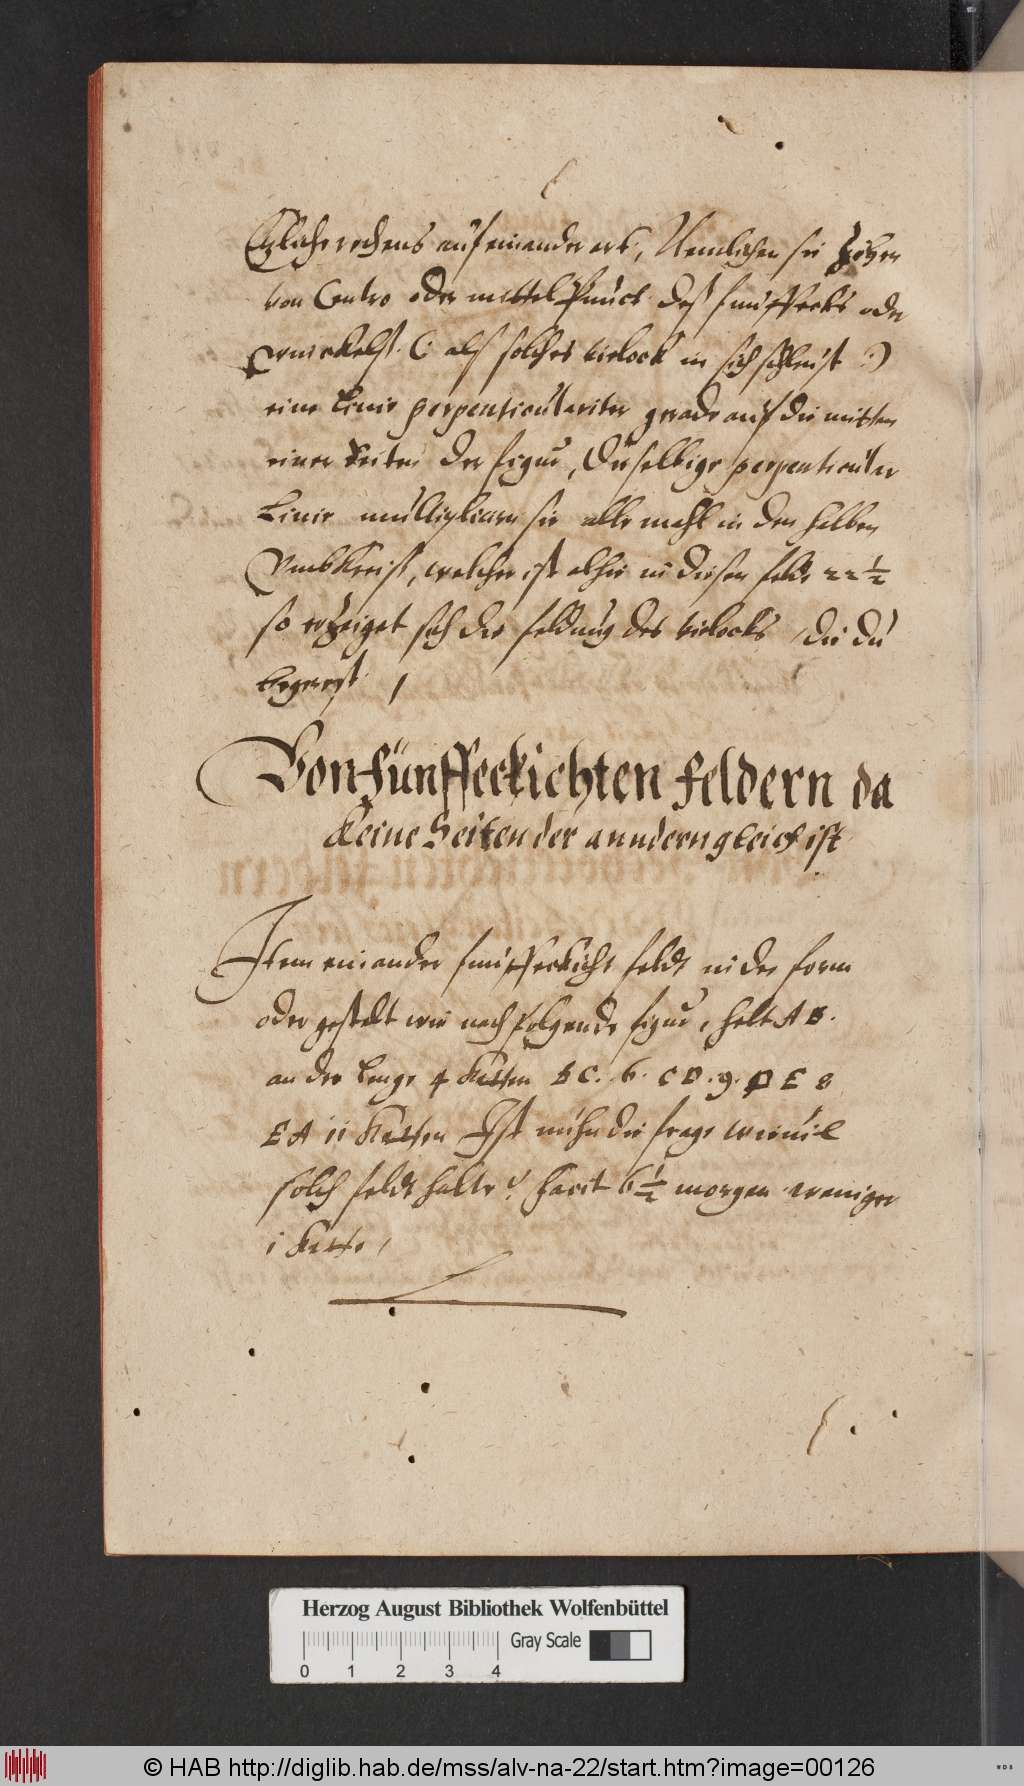 Etliche rechens auf ein ander art, Nemlichen sie Ziehen
von Centro oder mittel Punct deß funffecks oder
(: als solches vieleck in sich schleust :)
eine Linie perpenticulariter grade auf die mitten
einer Seiten der figur, Dieselbige perpenticular
Linie multipliciern sie alle mahl in den halben
Vmbkreiß, welcher ist alhie in diesen felde 22 1/2
so erZeiget sich die feldung des vielecks, die du
begerest /
Von fünffeckichten feldern da
Keine Seiten der anndern gleich ist
Item ein ander funffeckicht feldt in der form
oder gestalt wie nachfolgende figur, helt A B.
an der lenge 4 Ketten B C. 6. C D. 9. D E 8
E A 11 Ketten Ist nuhn die frage wieuil
solch feldt halte? facit 6 1/2 morgen weniger
1 Kette /
Herzog August Bibliothek Wolfenbüttel
Gray Scale
0 1 2 3 4
© HAB http://diglib.hab.de/mss/alv-na-22/start.htm?image=00126